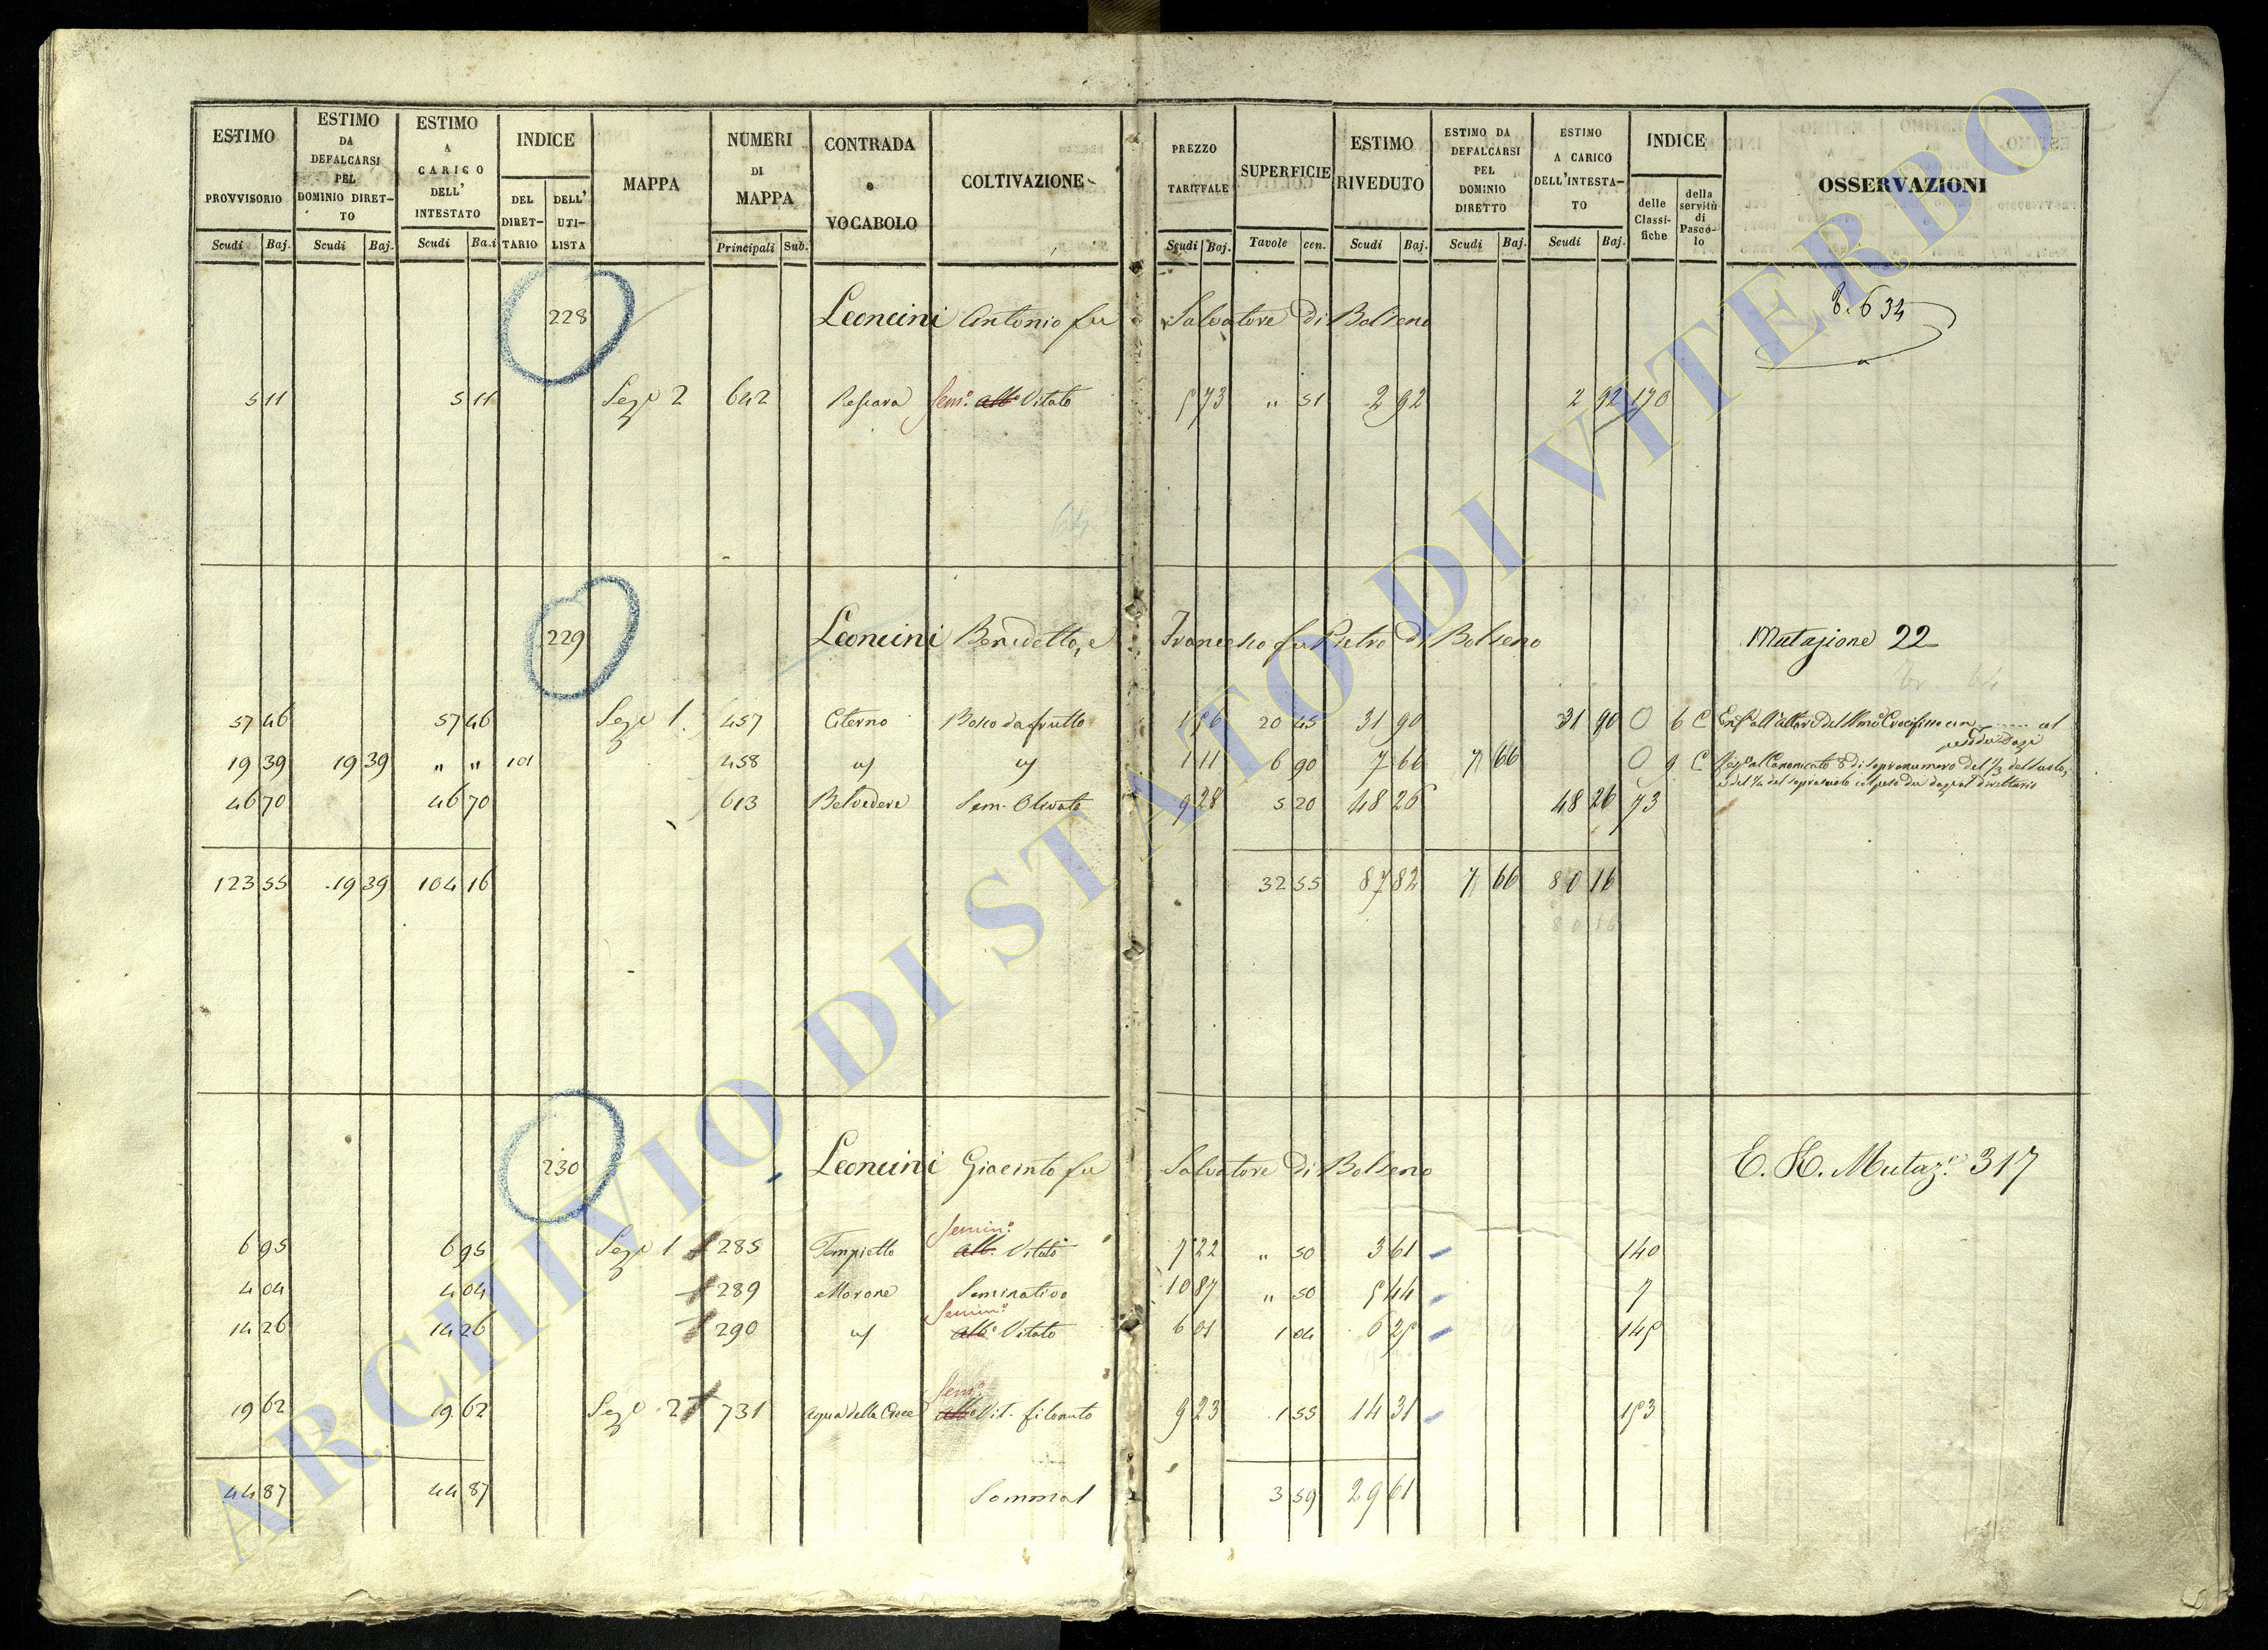 ESTIMO PROVVISORIO Scudi Baj.
ESTIMO DA DEFALCARSI PEL DOMINIO DIRETTO Scudi Baj.
ESTIMO A CARICO DELL' INTESTATO Scudi Ba.i
INDICE DEL DIRETTARIO DELL' UTILISTA
MAPPA
NUMERI DI MAPPA Principali Sub.
CONTRADA o VOCABOLO
COLTIVAZIONE
PREZZO TARIFFALE Scudi Baj.
SUPERFICIE Tavole cen.
ESTIMO RIVEDUTO Scudi Baj.
ESTIMO DA DEFALCARSI PEL DOMINIO DIRETTO Scudi Baj.
ESTIMO A CARICO DELL'INTESTATO Scudi Baj.
INDICE delle Classifiche della servitù di Pascolo
OSSERVAZIONI
228 Leoncini Antonio fu Salvatore di Bolseno 8.634
5 11 5 11 Seze 2 642 Pescara Sem.o alb.o Vitato 5 73 " 51 2 92 2 92 170
64
229 Leoncini Benedetto, e Francesco fu Pietro di Bolseno Mutazione 22
57 46 57 46 Seze 1. 457 Citerno Bosco da frutto 1 56 20 45 31 90 31 90 0 6 C
19 39 19 39 " " 101 458 " " 1 11 6 90 7 66 7 66 0 9 C
46 70 46 70 613 Belvedere Sem. Olivato 9 28 5 20 48 26 48 26 73
123 55 19 39 104 16 32 55 87 82 7 66 80 16
230 Leoncini Giacinto fu Salvatore di Bolseno E. H. Mutaz.e 317
6 95 6 95 Seze 1 285 Tempietto Semin.o alb. Vitato 7 22 " 50 3 61 140
4 04 4 04 289 Morone Seminativo 10 87 " 50 5 44 7
14 26 14 26 290 " Semin.o alb.o Vitato 6 01 1 04 6 25 145
19 62 19 62 Seze 2 731 Aqua della Croce Sem.o alb.o Vit. filonato 9 23 1 55 14 31 153
44 87 44 87 Somma 3 59 29 61
ARCHIVIO DI STATO DI VITERBO